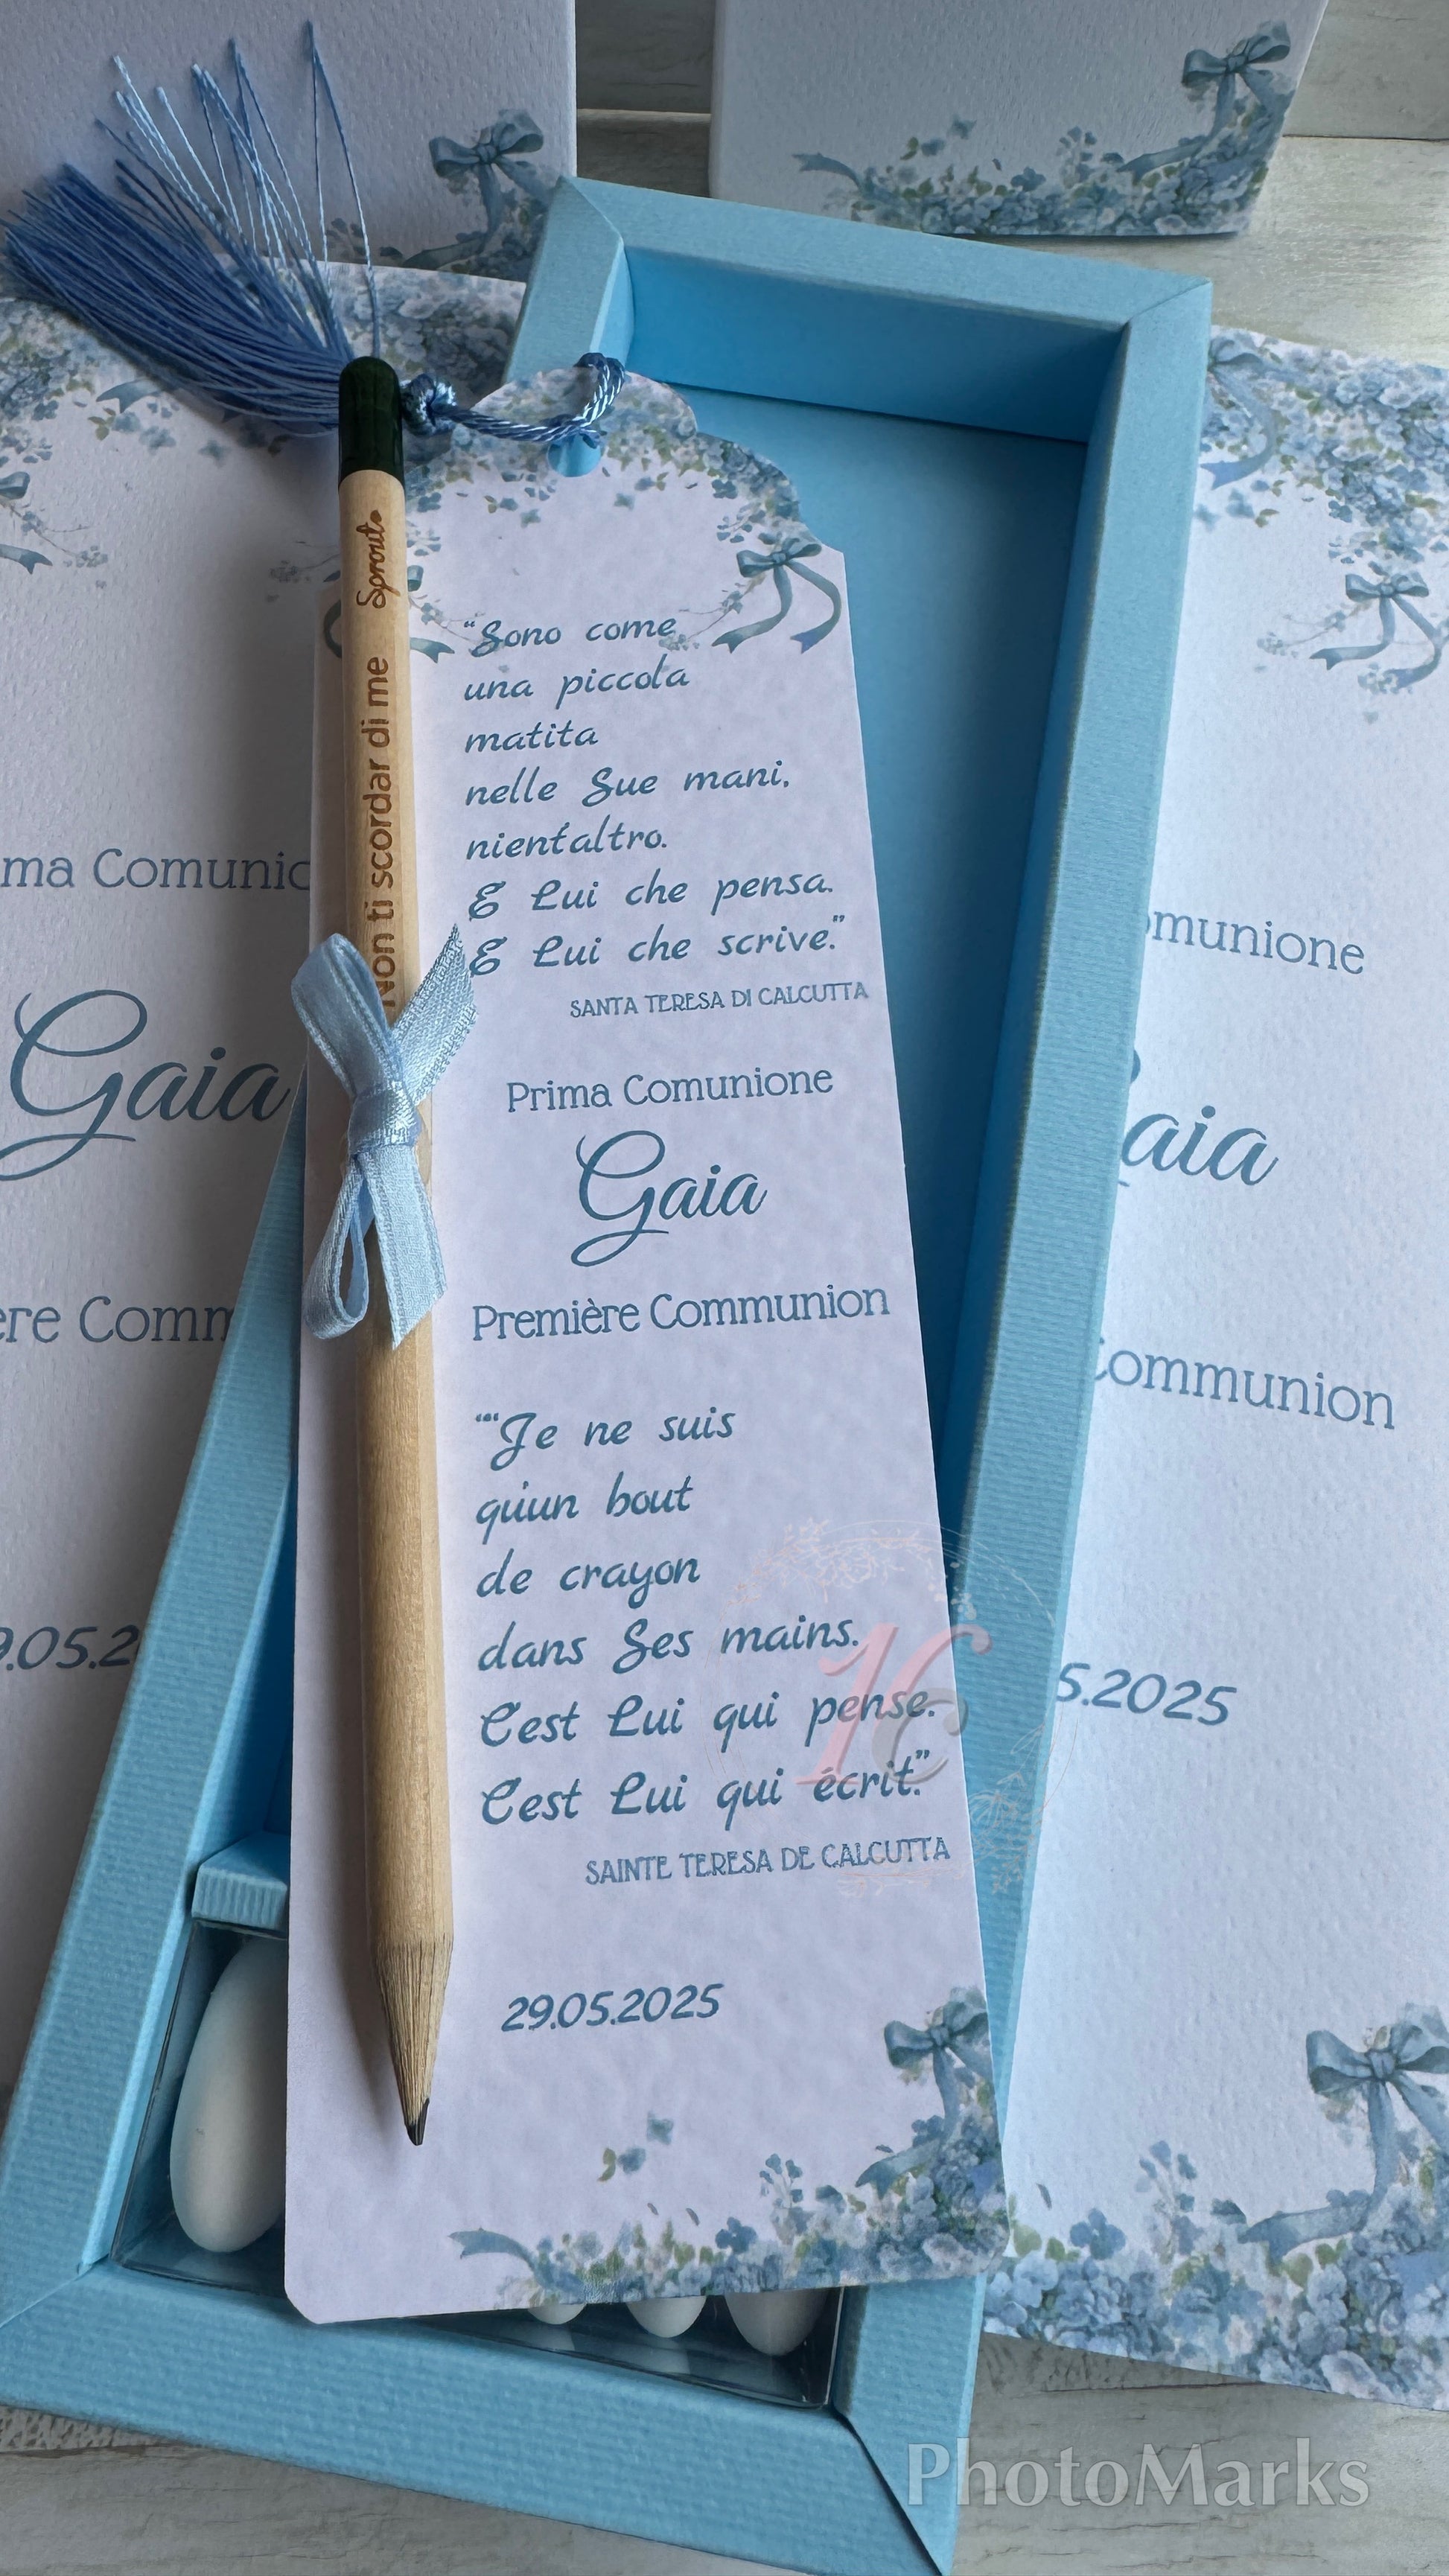 Sprout
Non ti scordar di me
“Sono come
una piccola
matita
nelle Sue mani,
nient'altro.
È Lui che pensa.
È Lui che scrive.”
SANTA TERESA DI CALCUTTA
Prima Comunione
Gaia
Première Communion
““Je ne suis
qu'un bout
de crayon
dans Ses mains.
C'est Lui qui pense.
C'est Lui qui écrit.”
SAINTE TERESA DE CALCUTTA
29.05.2025
ma Comunio
Gaia
ère Comm
9.05.2
omunione
aia
Communion
5.2025
PhotoMarks